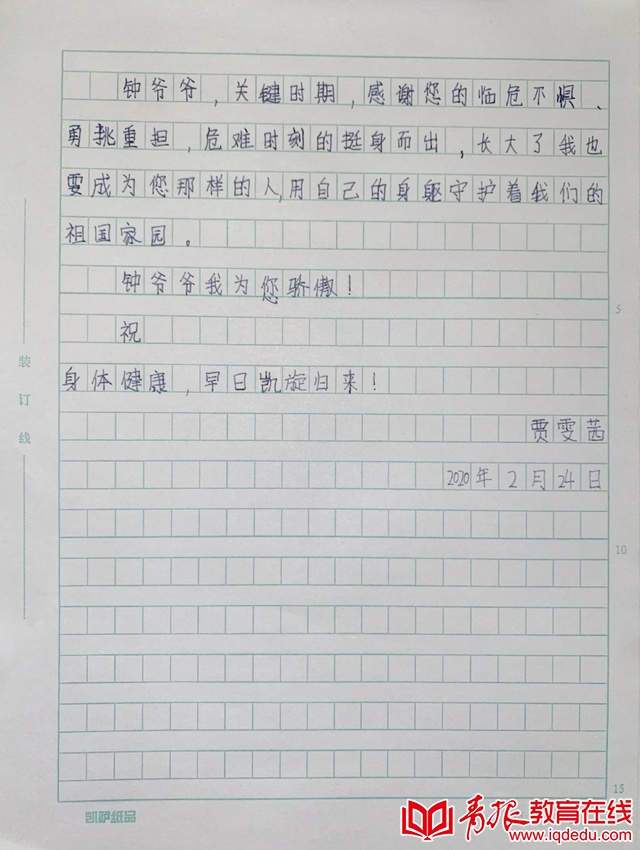 钟爷爷，关键时期，感谢您的临危不惧、
勇挑重担，危难时刻的挺身而出，长大了我也
要成为您那样的人，用自己的身躯守护着我们的
祖国家园。
钟爷爷我为您骄傲！
5
祝
身体健康，早日凯旋归来！
贾雯茜
2020年2月24日
10
15
装订线
凯萨纸品
青报教育在线
www.iqdedu.com